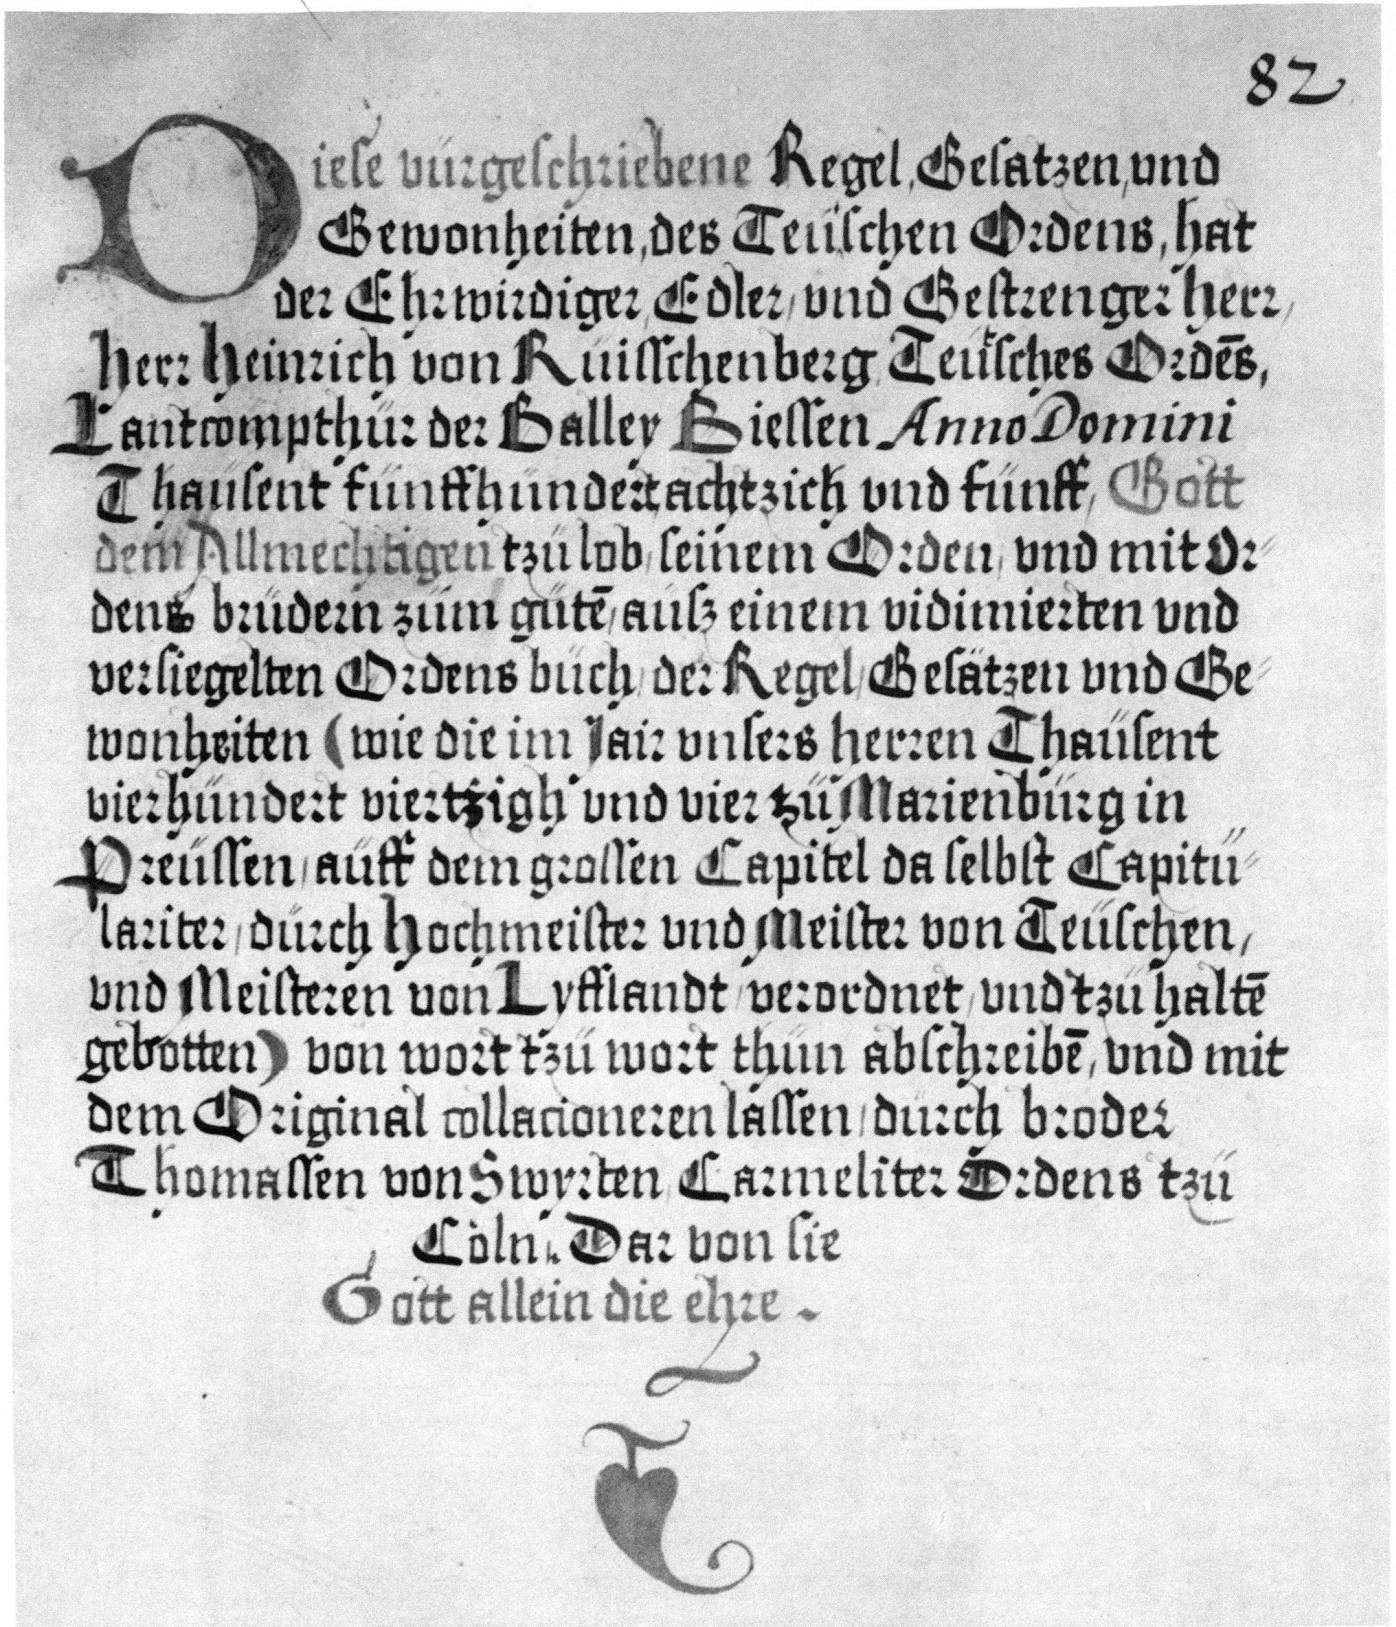 82
Diese vürgeschriebene Regel, Gesatzen, vnd
Gewonheiten, des Teüschen Ordens, hat
der Ehrwirdiger, Edler, vnd Gestrenger herr,
herr heinrich von Rüisschenberg, Teüsches Ordēs,
Lantcompthür der Balley Biessen Anno Domini
Thaüsent fünffhündert achtzich vnd fünff, Gott
dem Allmechtigen tzü lob, seinem Orden, vnd mit Or-
dens brüdern züm gütē, aüsz einem vidimierten vnd
versiegelten Ordens büch, der Regel, Gesätzen vnd Ge-
wonheiten (wie die im Jair vnsers herren Thaüsent
vierhündert viertzigh vnd vier tzü Marienbürg in
Preüssen, aüff dem grossen Capitel da selbst Capitü-
lariter, dürch hochmeister vnd Meister von Teüschen,
vnd Meisteren von Lyfflandt, verordnet, vnd tzü haltē
gebotten) von wort tzü wort thün abschreibē, vnd mit
dem Original collacioneren lassen, dürch broder
Thomassen von Swyrten, Carmeliter Ordens tzü
Cöln. Dar von sie
Gott allein die ehre